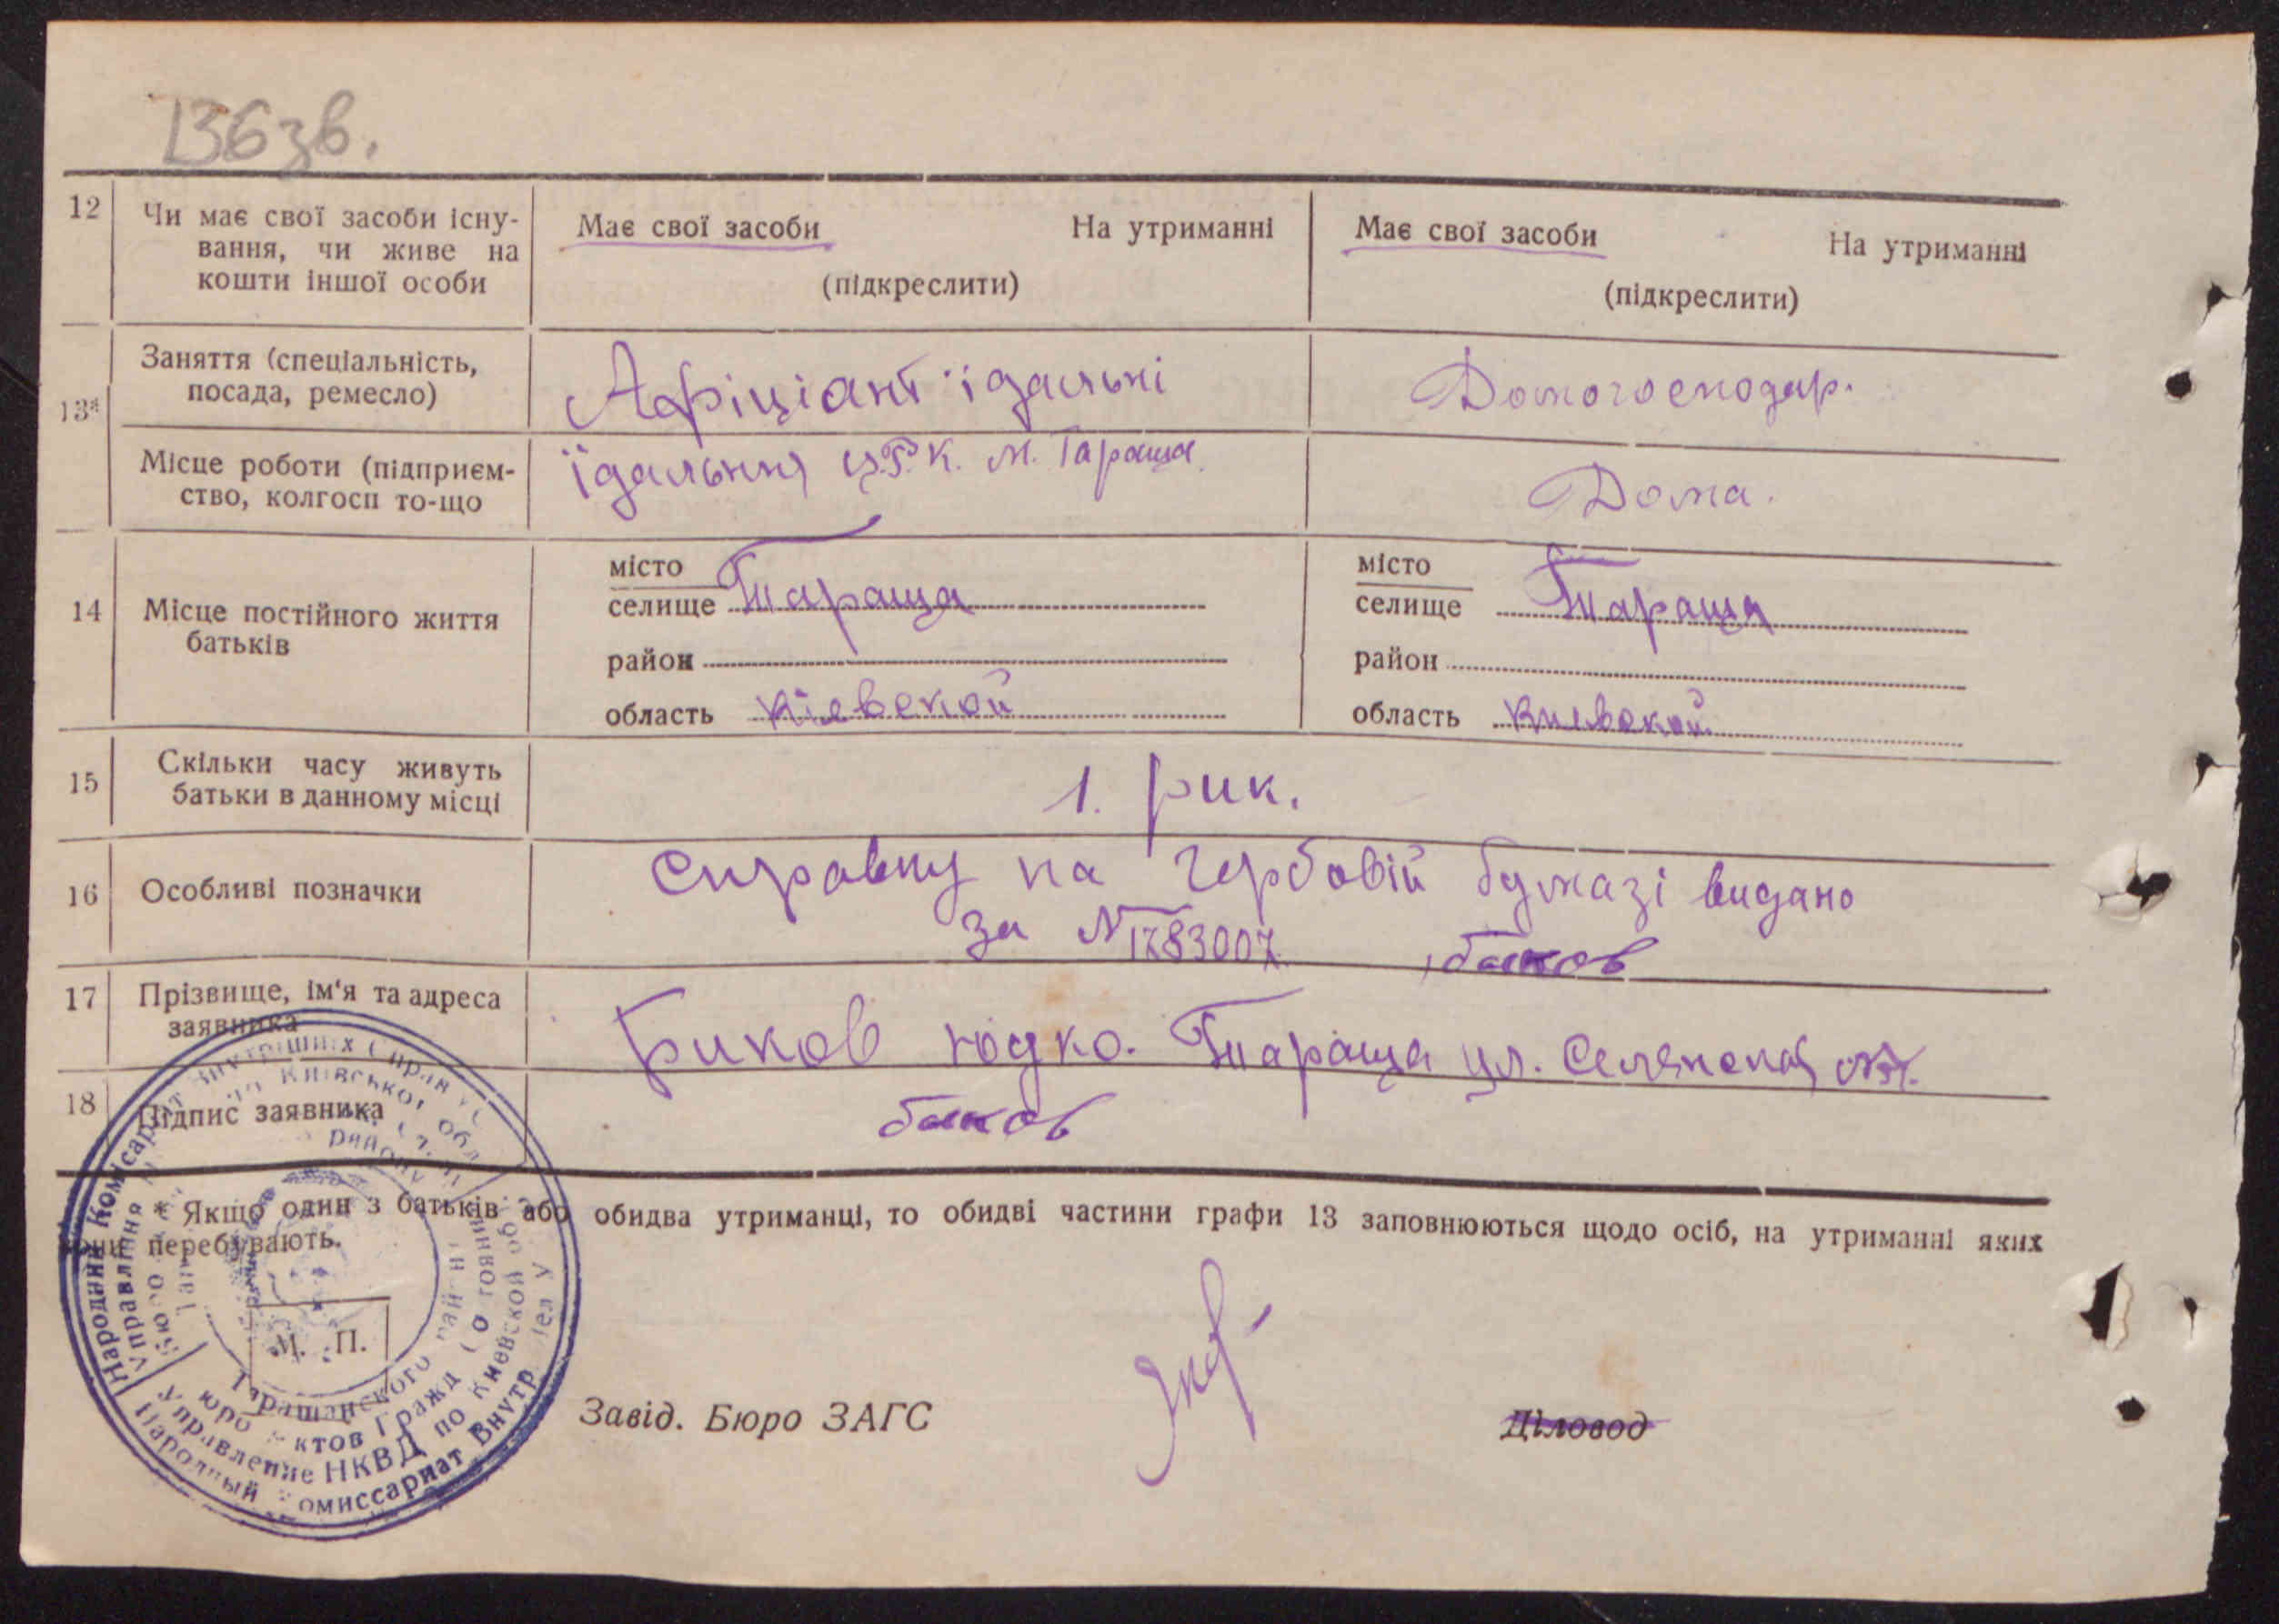 136зв.
12 Чи має свої засоби існу-
вання, чи живе на
кошти іншої особи
Має свої засоби На утриманні
(підкреслити)
Має свої засоби На утриманні
(підкреслити)
13* Заняття (спеціальність,
посада, ремесло)
Афіціант їдальні
Домогосподар.
Місце роботи (підприєм-
ство, колгосп то-що
їдальня Ц.Р.К. м. Тараща
Дома.
14 Місце постійного життя
батьків
місто
селище Тараща
район
область Кіевской
місто
селище Тараща
район
область Киевской
15 Скільки часу живуть
батьки в данному місці
1. рик.
16 Особливі позначки
Справку на гербовій бумазі видано
за № 1783007 биков
17 Прізвище, ім'я та адреса
заявника
Биков Юдко. Тараща ул. Селянская
18 Підпис заявника
биков
* Якщо один з батьків або обидва утриманці, то обидві частини графи 13 заповнюються щодо осіб, на утриманні яких
вони перебувають.
М. П.
Завід. Бюро ЗАГС
Діловод
Народний Комісаріат Внутрішніх Справ
Управління Київської обл.
Таращанского
Управление НКВД по Киевской обл.
Народный Комиссариат Внутр. Дел У